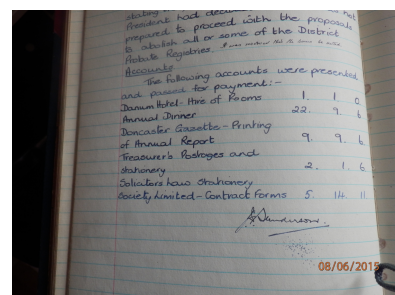 stating
President had dec not
prepared to proceed with the proposals
to abolish all or some of the District
Probate Registries.
Accounts
The following accounts were presented
and passed for payment:-
Danum Hotel - Hire of Rooms 1. 1. 0.
Annual Dinner 22. 9. 6
Doncaster Gazette - Printing
of Annual Report 9. 9. 6
Treasurer's Postages and
stationery 2. 1. 6
Solicitors Law Stationery
Society Limited - Contract Forms 5. 14. 11
08/06/2019